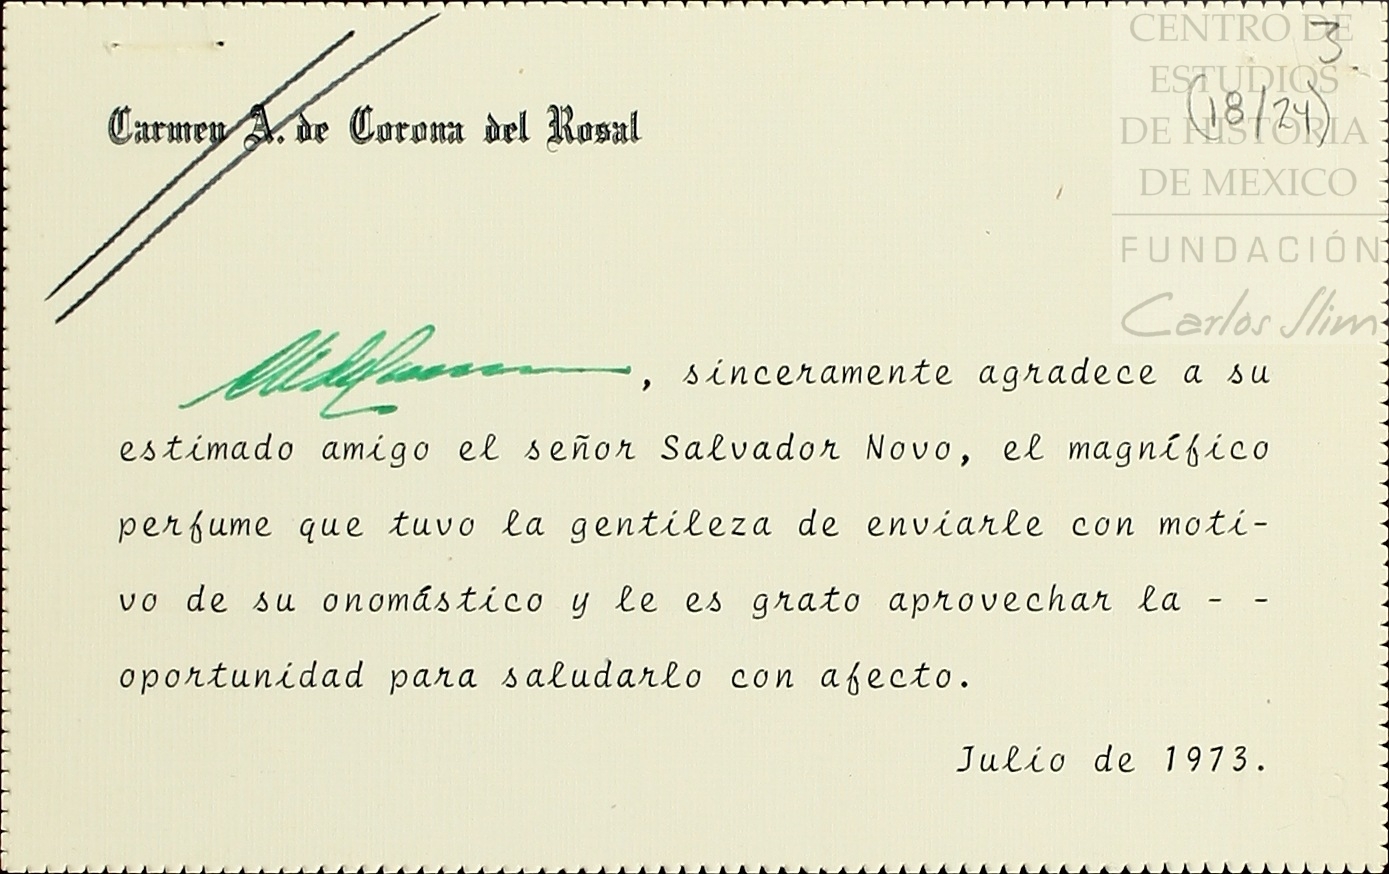 CENTRO DE
ESTUDIOS
DE HISTORIA
DE MEXICO
FUNDACIÓN
Carlos Slim
3.
(18/24)
Carmen A. de Corona del Rosal
, sinceramente agradece a su
estimado amigo el señor Salvador Novo, el magnífico
perfume que tuvo la gentileza de enviarle con moti-
vo de su onomástico y le es grato aprovechar la - -
oportunidad para saludarlo con afecto.
Julio de 1973.